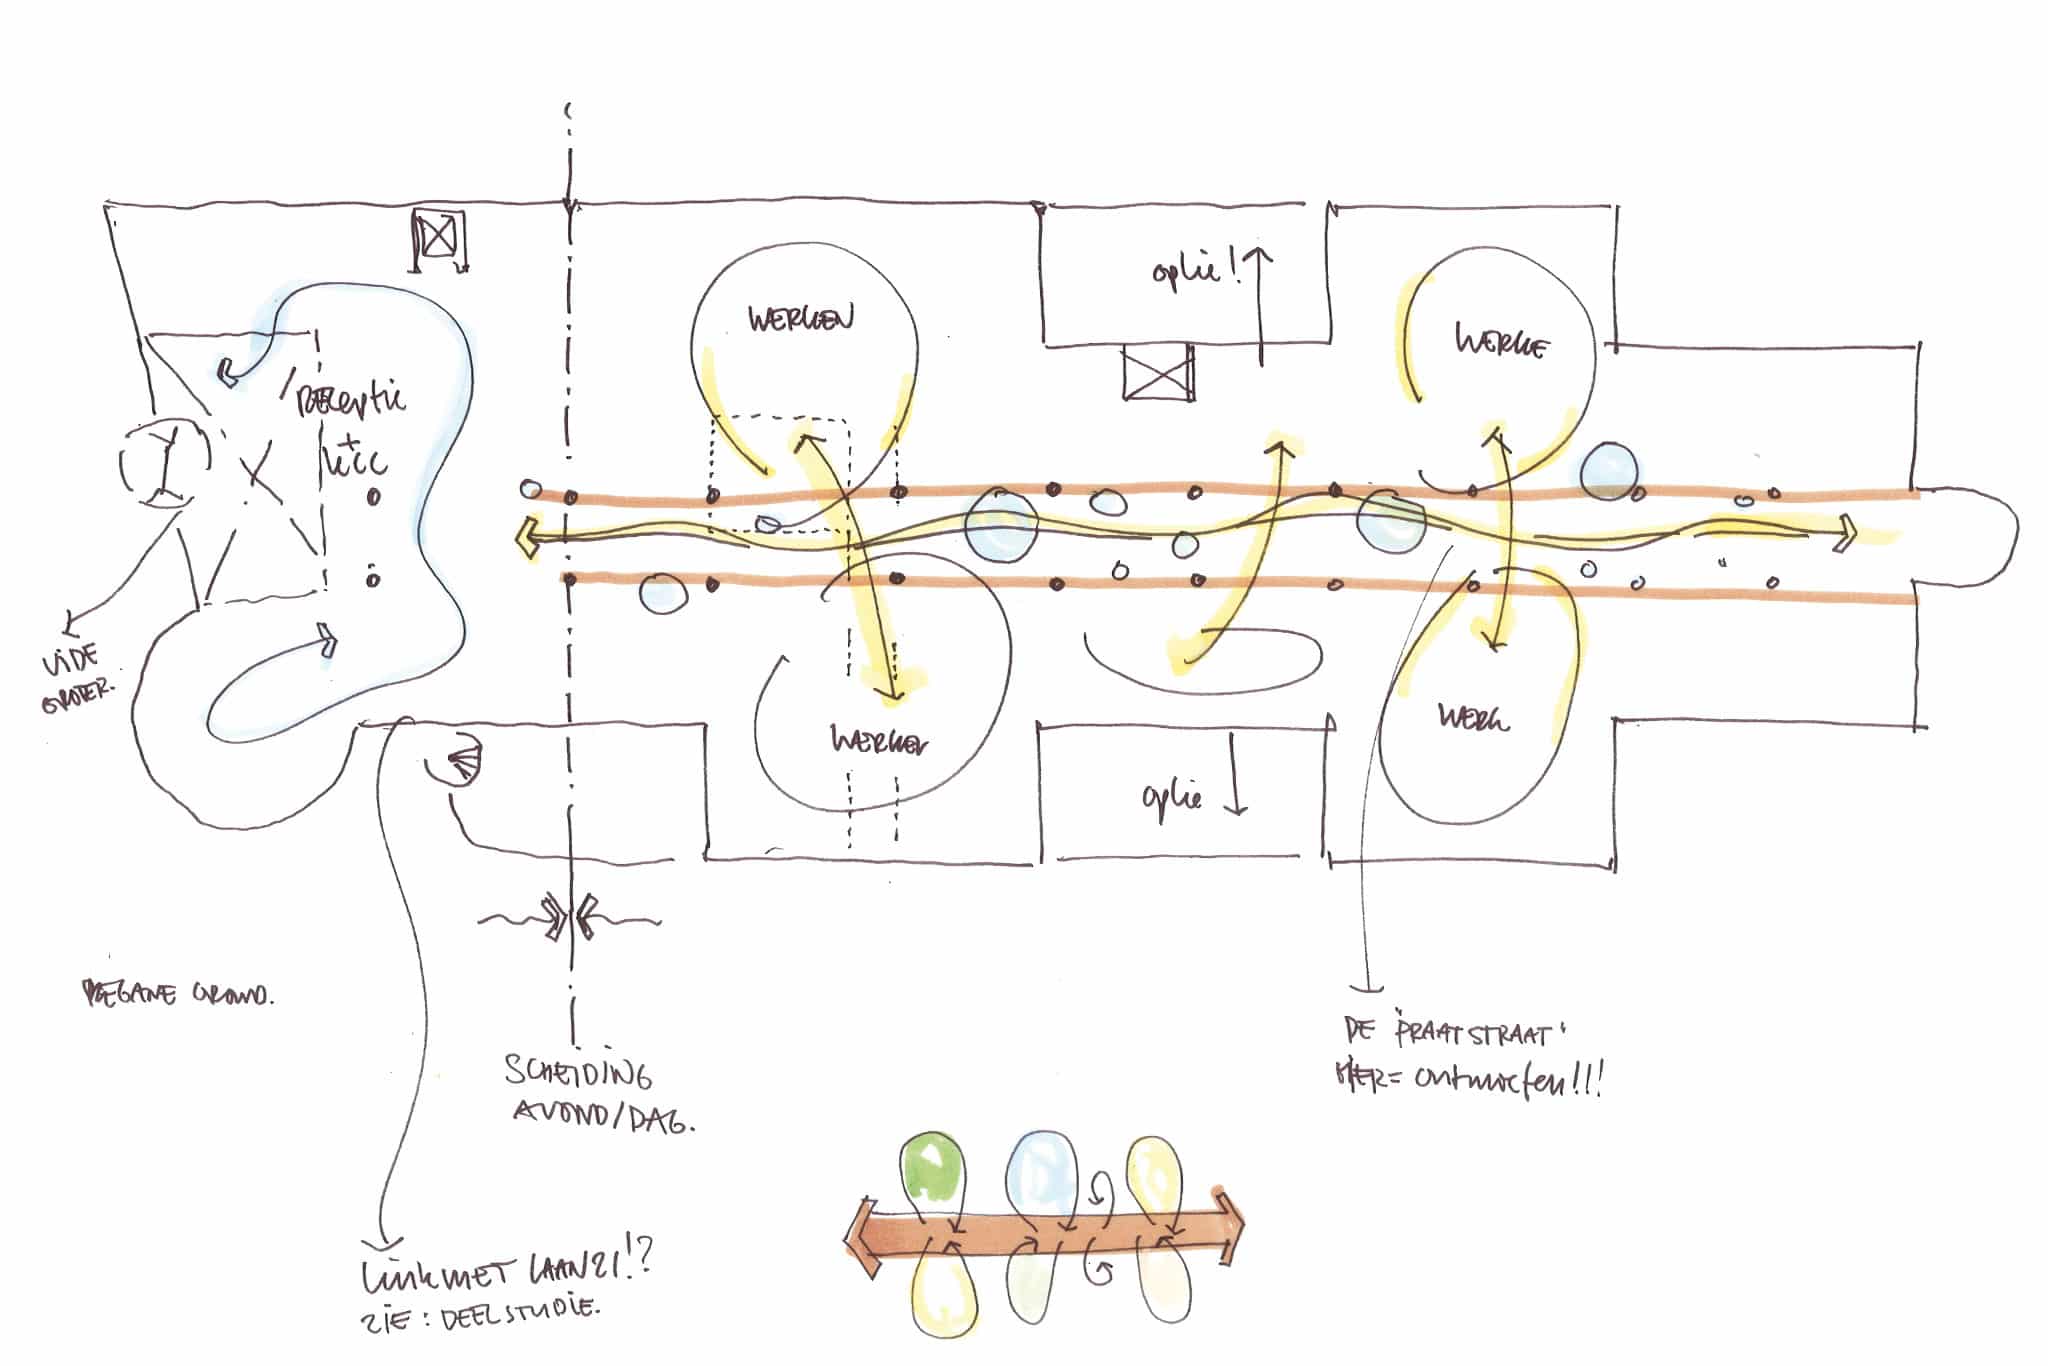 oplie!
WERKEN
WERKE
/RECEptie
+
KCC
VIDE
GROTER.
WERKEN
WERK
oplie
BEGANE GROND.
SCHEIDING
AVOND/DAG.
DE 'PRAATSTRAAT'
HIER= ontmoeten!!!
Link MET LAANZI!?
ZIE: DEELSTUDIE.